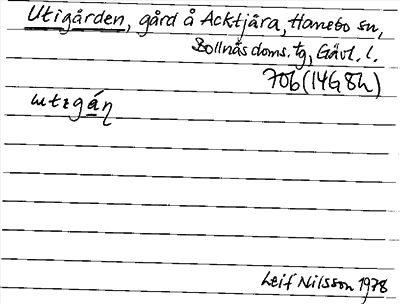 Utigården, gård å Acktjära, Hanebo sn,
Bollnäs doms. tg, Gävl. l.
706 (14G8h)
utigán
Leif Nilsson 1978